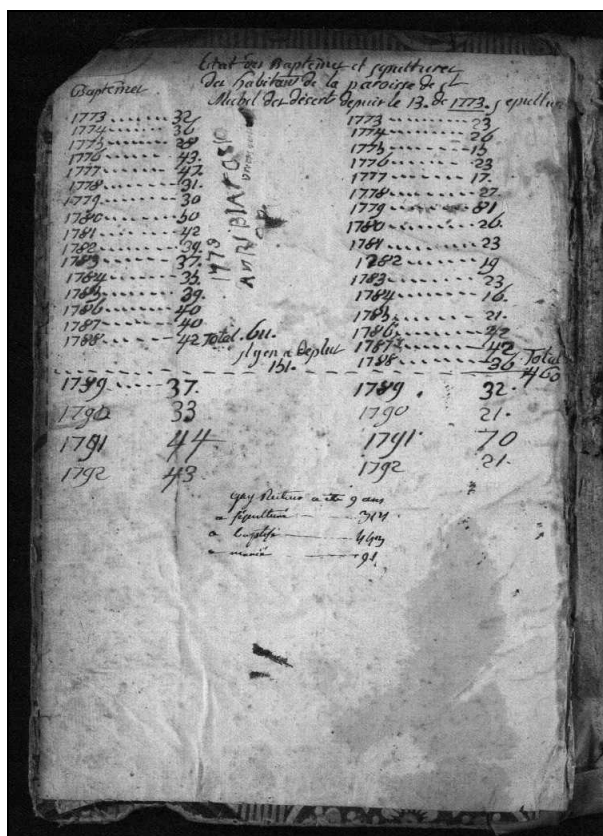 Etat des Baptemes et sepultures
des habitans de la paroisse de St
Michel des deserts depuis le 13. de 1773. sepultur
Baptemes
1773 ........ 32,
1774 ........ 36
1775 ........ 28
1776 ....... 43.
1777 ....... 47.
1778 ....... 31.
1779 ....... 30
1780 ....... 50
1781 ....... 42
1782 ....... 39.
1783 ....... 37.
1784 ....... 35.
1785 ....... 39.
1786 ....... 40
1787 ....... 40
1788 ....... 42 Total. 611.
il y en a de plus
151.
1789 ..... 37.
1790 33
1791 44
1792 43.
1779
1773 ........ 23
1774 ........ 26
1775 ........ 15
1776 ........ 23
1777 ........ 17.
1778 ........ 27.
1779 ........ 81
1780 ........ 26.
1781 ........ 23
1782 ....... 19
1783 ....... 23
1784 ....... 16.
1785 ....... 21.
1786 ....... 42
1787 ....... 42
1788 ....... 36 Total
460
1789. 32.
1790 21.
1791. 70
1792 21.
a été 9 ans
a sépulturé 314
a baptisé 443
a marié 91